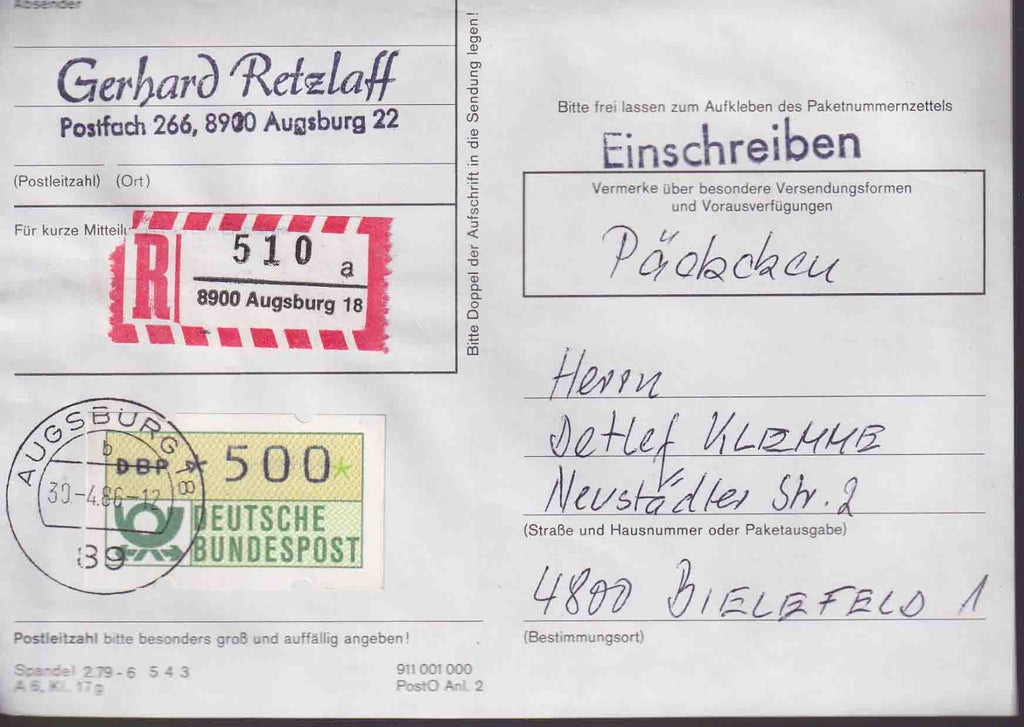 Absender
Gerhard Retzlaff
Postfach 266, 8900 Augsburg 22
(Postleitzahl) (Ort)
Für kurze Mitteil
R 510 a
8900 Augsburg 18
Bitte Doppel der Aufschrift in die Sendung legen!
AUGSBURG 18
b
30.-4.86-12
89
DBP * 500 *
DEUTSCHE
BUNDESPOST
Postleitzahl bitte besonders groß und auffällig angeben!
Spandel 2.79 - 6 5 4 3
A 6, Kl. 17g
911 001 000
PostO Anl. 2
Bitte frei lassen zum Aufkleben des Paketnummernzettels
Einschreiben
Vermerke über besondere Versendungsformen
und Vorausverfügungen
Päckchen
Herrn
Detlef KLEMME
Neustädter Str. 2
(Straße und Hausnummer oder Paketausgabe)
4800 BIELEFELD 1
(Bestimmungsort)